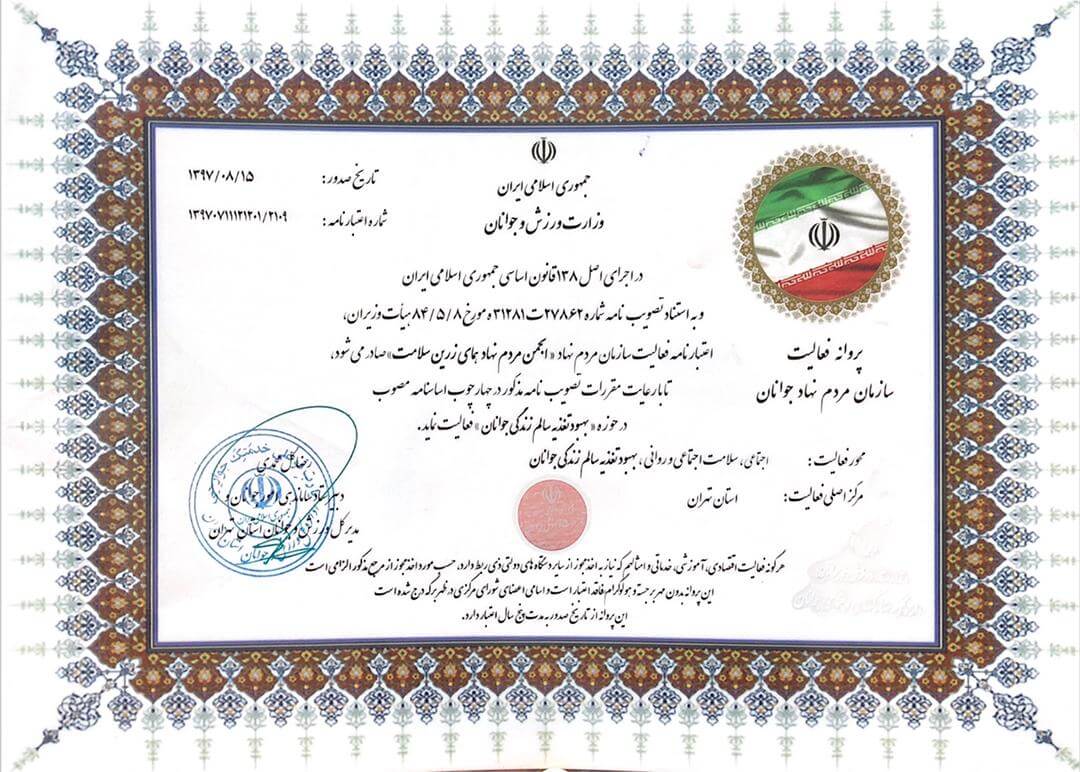 جمهوری اسلامی ایران
وزارت ورزش و جوانان
تاریخ صدور: ۱۳۹۷/۰۸/۱۵
شماره اعتبارنامه: ۱۳۹۷۰۷۱۱۱۲۱۲۰۱/۲۱۰۹
پروانه فعالیت
سازمان مردم نهاد جوانان
در اجرای اصل ۱۳۸ قانون اساسی جمهوری اسلامی ایران
و به استناد تصویب نامه شماره ۲۷۸۶۲ت۳۱۲۸۱ه مورخ ۸۴/۵/۸ هیأت وزیران،
اعتبارنامه فعالیت سازمان مردم نهاد «انجمن مردم نهاد همای زرین سلامت» صادر می شود،
تا با رعایت مقررات تصویب نامه مذکور در چهارچوب اساسنامه مصوب
در حوزه «بهبود تغذیه سالم زندگی جوانان» فعالیت نماید.
محور فعالیت: اجتماعی، سلامت اجتماعی و روانی، بهبود تغذیه سالم زندگی جوانان
مرکز اصلی فعالیت: استان تهران
دبیر ستاد ساماندهی امور جوانان و
مدیرکل ورزش و جوانان استان تهران
هرگونه فعالیت اقتصادی، آموزشی، خدماتی و امثالهم که نیاز به اخذ مجوز از سایر دستگاه های دولتی ذی ربط دارد، حسب مورد اخذ مجوز از مرجع مذکور الزامی است
این پروانه بدون مهر برجسته و هولوگرام فاقد اعتبار است و اسامی اعضای شورای مرکزی در ظهر برگه درج شده است
این پروانه از تاریخ صدور به مدت پنج سال اعتبار دارد.